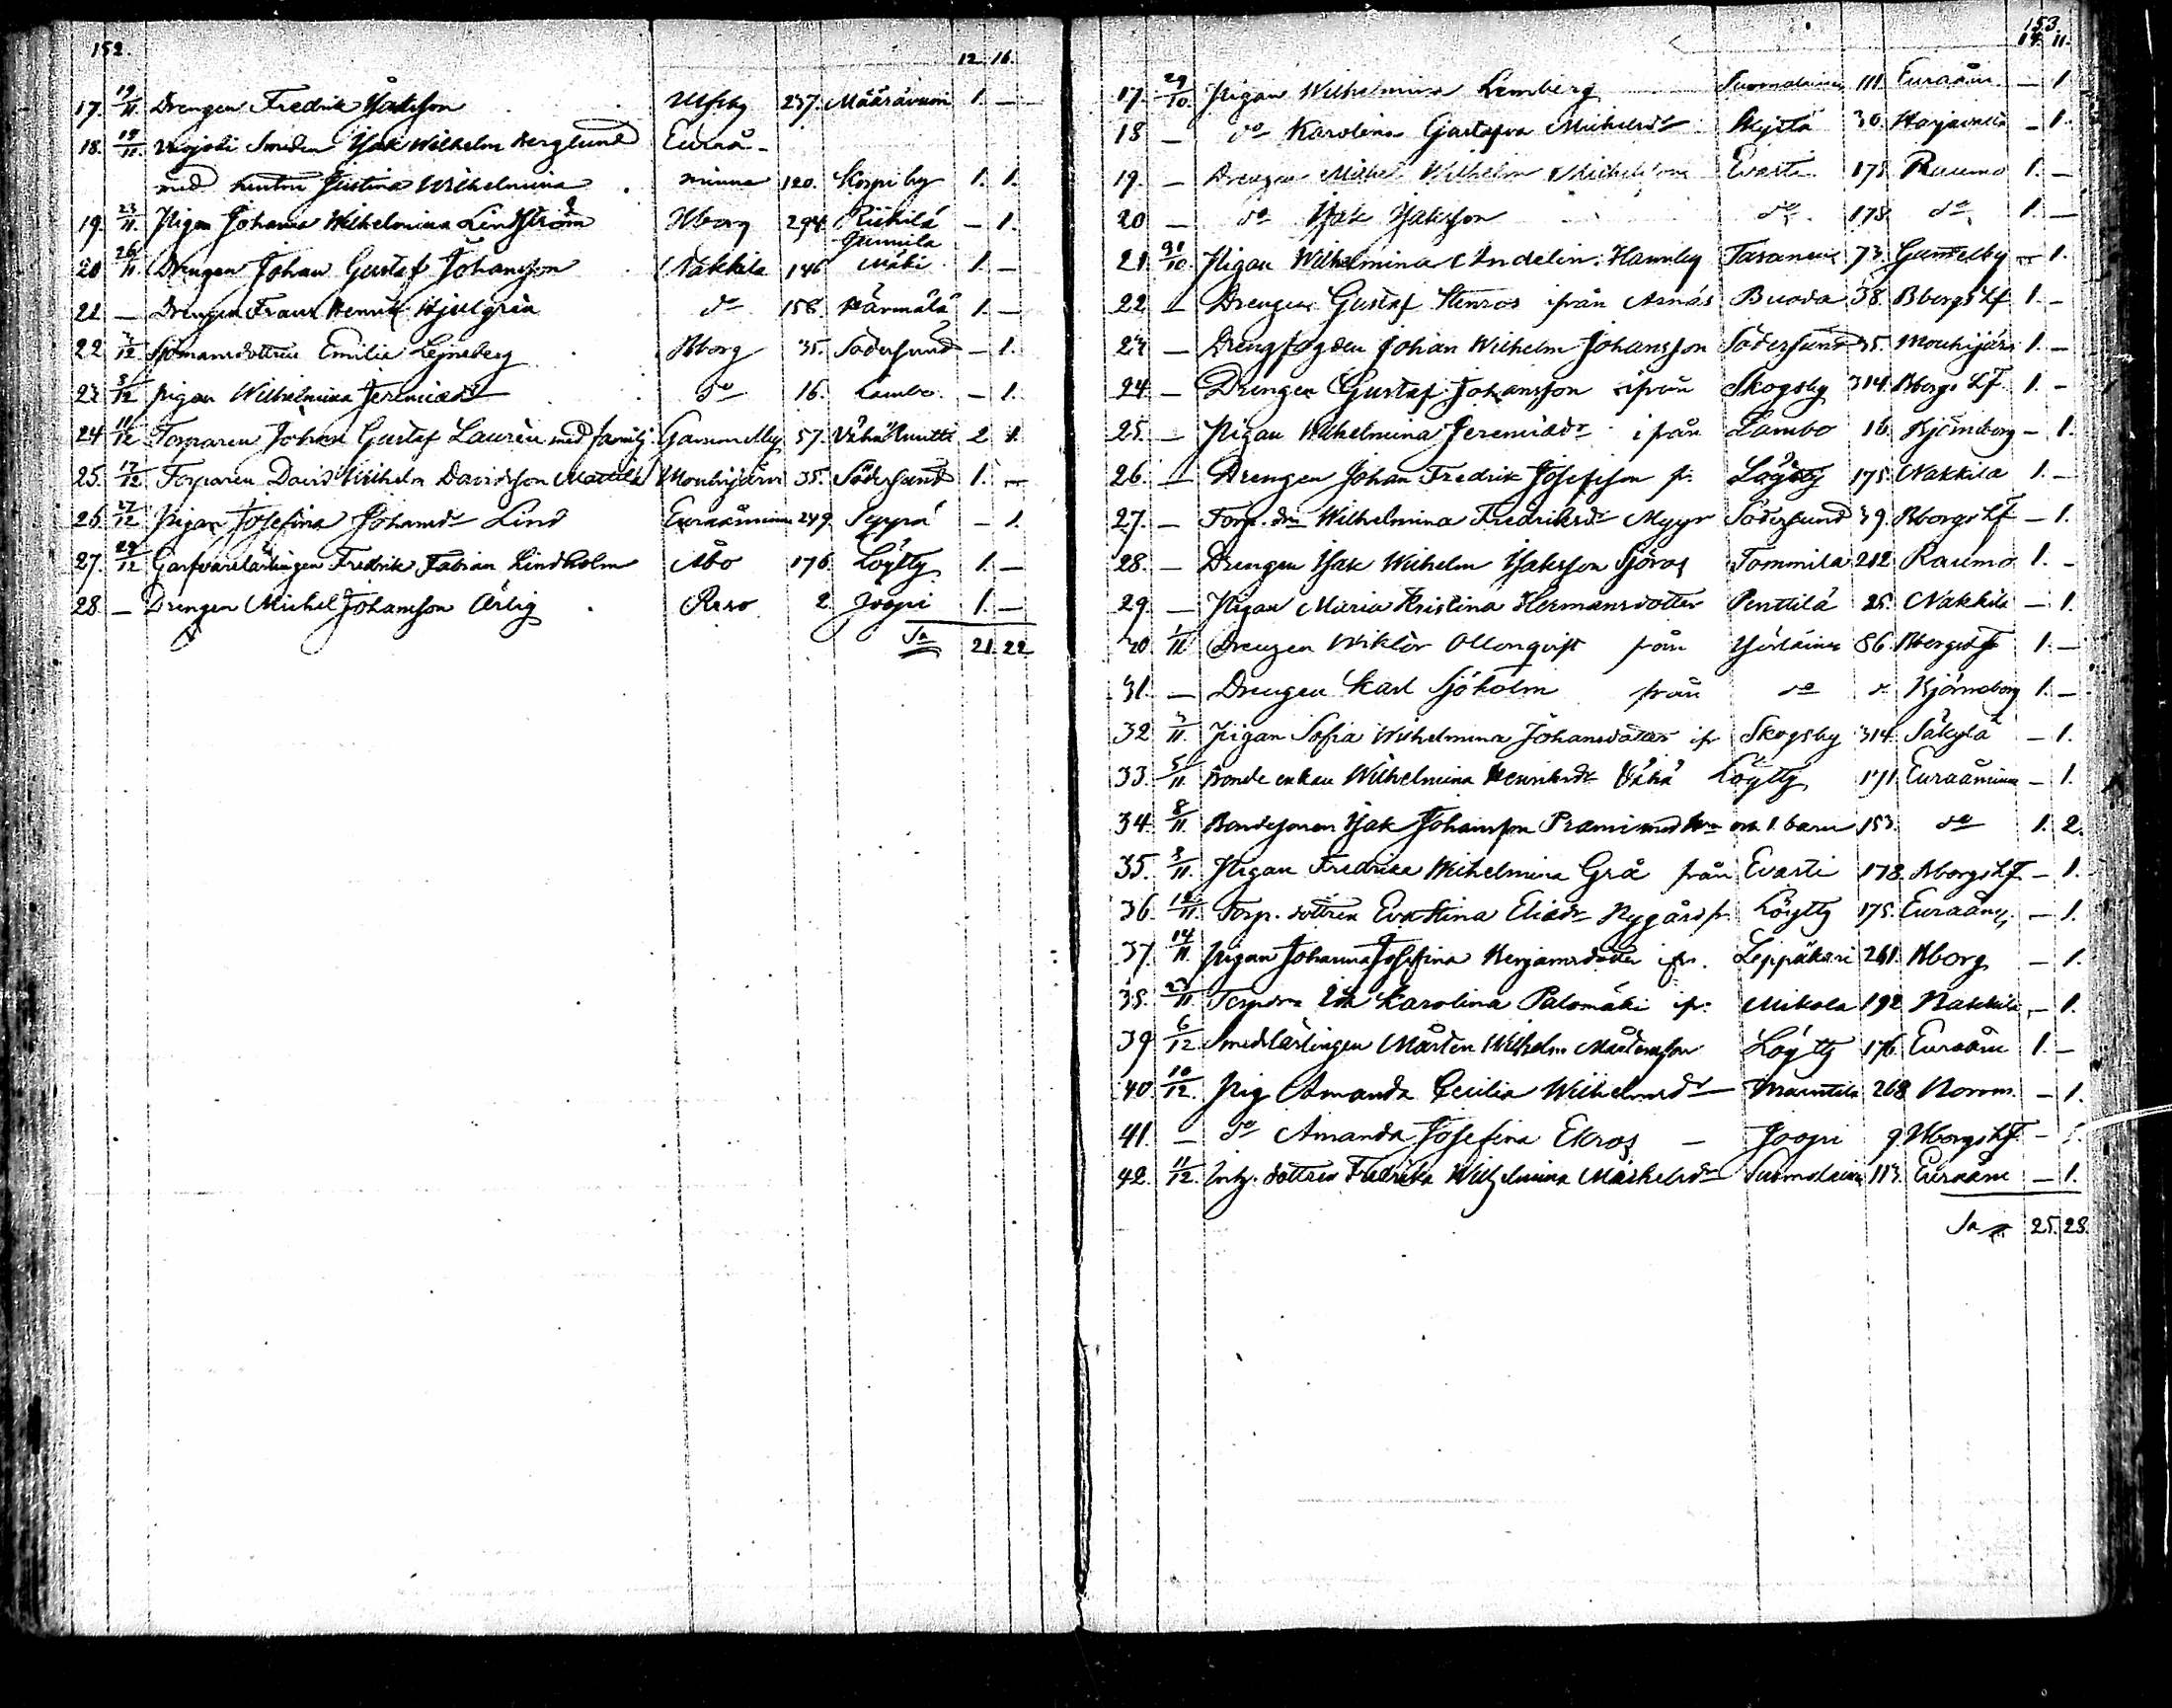 152.
12. 16.
17. 19/11. Drengen Fredrik Isaksson Ulfsby 237. Määrävuori 1. —
18. 19/11. Isak Wilhelm Berglund Euraå-
med hustru Justina Wilhelmina minne 120. Korpi by 1. 1.
19. 23/11. Pigan Johanna Wilhelmina Lindström Bborg 294. Riihilä — 1.
20 26/11 Drengen Johan Gustaf Johansson Nakkila 146 Gumila Mäki 1. —
21 — Drengen Frans Henrik Hjulgrén do 156. Härmälä 1. —
22 3/12 Sjömansdottren Emilia Lejneberg Bborg 35. Södersund — 1.
23 8/12 Pigan Wilhelmina Jeremiædr do 16. Lambo — 1.
24 11/12 Torparen Johan Gustaf Laurén med familj Gammelby 57. Vähä Knutti 2 1.
25. 17/12 Torparen David Wilhelm Davidsson Mattila Mouhijärvi 35. Södersund 1. —
26. 27/12 Pigan Josefina Johansdr Lind Euraåminne 249. Syyrä — 1.
27. 29/12 Garfvarelärlingen Fredrik Fabian Lindholm Åbo 176. Löytty 1. —
28. — Drengen Michel Johansson Ärlig Reso 2. Joopi 1. —
Sa 21. 22

153.
14. 11.
17. 29/10. Pigan Wilhelmina Lemberg Suomalainen 111. Euraåm. — 1.
18 — do Karolina Gustafva Michelsdr 30. Harjavalta — 1.
19. — Drengen Michel Wilhelm Michelsson Evasti 175 Raumo 1. —
20 — do Isak Isaksson do 178. do 1. —
21. 31/10. Pigan Wilhelmina Andelin. Hannby 73. Gamelby — 1.
22 — Drengen Gustaf Stenros ifrån Arnäs Buoda 38. Bborgs Lf. 1. —
23 — Drengfogden Johan Wilhelm Johansson Södersund 35. Mouhijärv 1. —
24. — Drengen Gustaf Johansson ifrån Skogsby 314. Bborgs Lf. 1. —
25. — Pigan Wilhelmina Jeremiædr ifrån Lambo 16. Björneborg — 1.
26. — Drengen Johan Fredrik Josefsson fr. Löytty 175. Nakkila 1. —
27. — Torp. drn Wilhelmina Fredriksdr Myyr Södersund 39. Bborgs Lf — 1.
28. — Drengen Isak Wilhelm Isaksson Sjöros Tommila 212 Raumo 1. —
29. — Pigan Maria Kristina Hermansdotter Penttilä 25. Nakkila — 1.
30 1/11 Drengen Wiktor Ollonqvist från 86. Bborgs Lf 1. —
31. — Drengen Karl Sjöholm från do do Björneborg 1. —
32 3/11. Pigan Sofia Wilhelmina Johansdotter ifr Skogsby 314. Säkylä — 1.
33. 5/11. Bonde enkan Wilhelmina Henriksdr Vähä Löytty 171 Euraåminne — 1.
34. 8/11. Bondesonen Isak Johansson Prami med hu och 1. barn 153. do 1. 2.
35. 8/11. Pigan Fredrika Wilhelmina Grå från Evasti 178. Bborgs Lf — 1.
36. 12/11. Torp. dottren Eva Stina Eliædr Nygård fr. Löytty 175. Euraåm. — 1.
37. 14/11. Pigan Johanna Josefina Benjamsdotter ifr. Leppäkari 261. Bborg — 1.
38. 23/11 Karolina Palomäki ifr. Mikola 192 Nakkila — 1.
39 6/12 Smedslärlingen Mårten Wilhelm Mårtensson Löytty 176. Euraåm 1. —
40. 10/12. Pig Amanda Cecilia Wilhelmsdr 268 Norrm. — 1.
41. — do Amanda Josefina Ekros — Joopi 9. Bborgs Lf. — 1.
42. 11/12. Inh. dottren Fredrika Wilhelmina Michelsdr Suomalainen 113. Euraåm — 1.
Sa 25. 28.